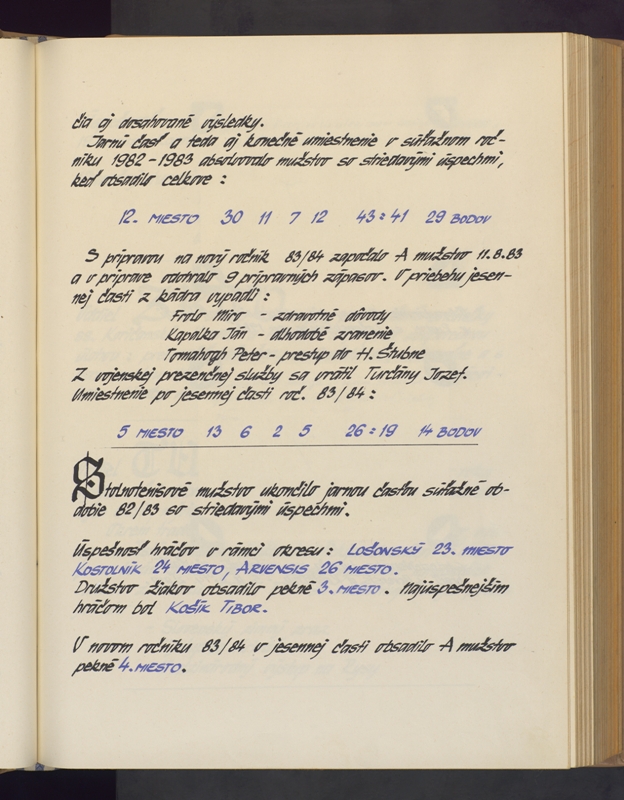 čia aj dosahované výsledky.
Jarnú časť a teda aj konečné umiestnenie v súťažnom roč-
níku 1982-1983 absolvovalo mužstvo so striedavými úspechmi,
keď obsadilo celkove :
12. MIESTO 30 11 7 12 43:41 29 BODOV
S prípravou na nový ročník 83/84 započalo A mužstvo 11.8.83
a v príprave odohralo 9 prípravných zápasov. V priebehu jesen-
nej časti z kádra vypadli :
Frolo Miro - zdravotné dôvody
Kapalka Ján - dlhodobé zranenie
Tomahogh Peter - prestup do H. Štubne
Z vojenskej prezenčnej služby sa vrátil Turčány Jozef.
Umiestnenie po jesennej časti roč. 83/84 :
5 MIESTO 13 6 2 5 26:19 14 BODOV
Stolnotenisové mužstvo ukončilo jarnou časťou súťažné ob-
dobie 82/83 so striedavými úspechmi.
Úspešnosť hráčov v rámci okresu : LOŠONSKÝ 23. MIESTO
KOSTOLNÍK 24 MIESTO, ARVENSIS 26 MIESTO.
Družstvo žiakov obsadilo pekné 3. MIESTO. Najúspešnejším
hráčom bol KOŠÍK TIBOR.
V novom ročníku 83/84 v jesennej časti obsadilo A mužstvo
pekné 4. MIESTO.